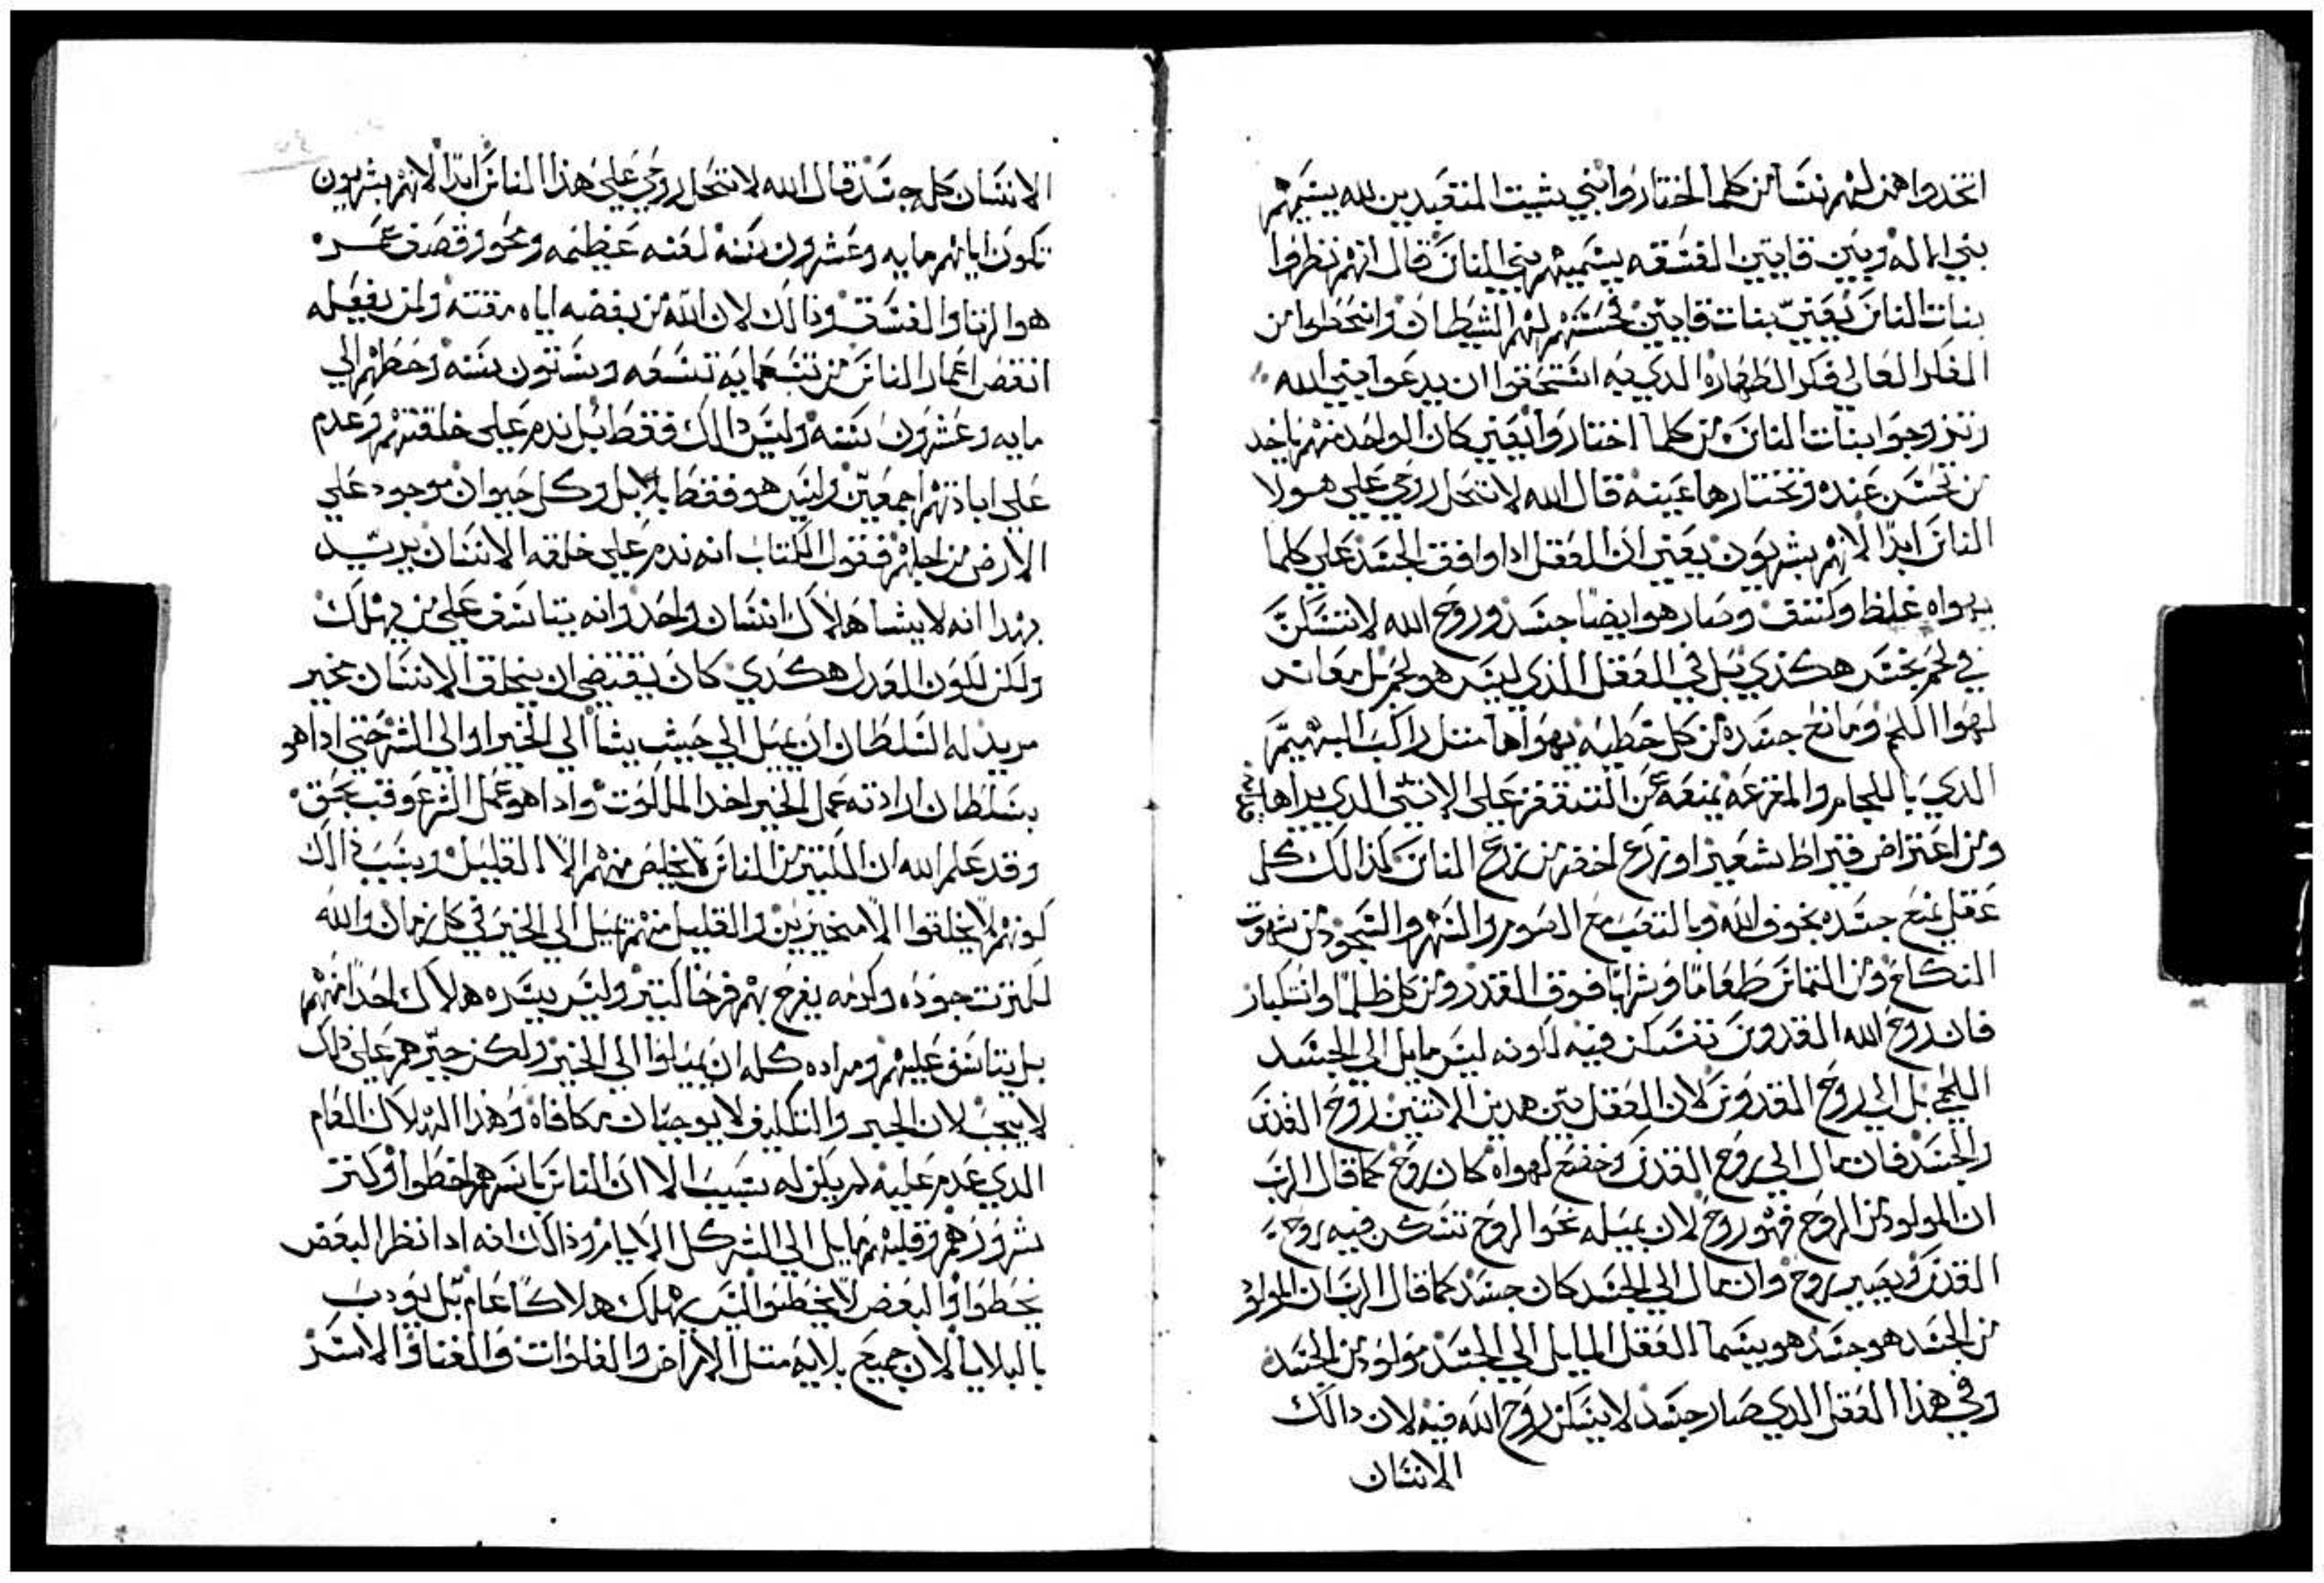 اتخدوا هن لهم نسا من كلما اختاروا وبني شيت المتعبدين لله يسميهم
بني الماله وبين قايين الفسقه يسميهم بني الناس قال انهم نظروا
بنات الناس يعني بنات قايين فحسنهم لهم الشيطان وانحطوا من
الفكر العالي فكر الطهاره الدي به استحقوا ان يدعوا بني الله
وتزوجوا بنات الناس من كلما اختاروا يعني كان الواحد منهم ياخد
من تحسن عنده وتختارها عينه قال الله لا تحل روحي علي هولا
الناس ابدا لانهم بشريون يعني ان العقل ادا وافق الجسد علي كلما
يهواه غلظ وكتف وصار هو ايضا جسد وروح الله لا تسكن
في لحم بجسد هكدي بل في العقل الذي ليس هو لحم بل معاند
لهوا اللحم ومانع جسده من كل خطيه يهواها متل راكب البهيمه
الدي باللجام والمقرعه يمنعه عن التقفز علي الانتي الدي يراها
ومن اعتراض قيراط شعير او زرع اخضر من زرع الناس كذالك كل
عقل يمنع جسده بخوف الله وبالتعب مع الصوم والسهر والسجود من شهوت
النكاح ومن التماس طعاما وشرابا فوق القدر ومن كل ظلما واستكبار
فان روح الله القدوس تسكن فيه لكونه ليس مايل الي الجسد
اللحمي بل الي روح القدوس لان العقل بين هدين الاتنين روح القدس
والجسد فان مال الي روح القدس وخضع لهواه كان روح كما قال الرب
ان المولود من الروح فهو روح لان بميله نحوا الروح تسكن فيه روح
القدس ويصير روح وان مال الي الجسد كان جسد كما قال الرب ان المولود
من الجسد هو جسد هو يسما العقل المايل الي الجسد مولود من الجسد
وفي هذا العقل الدي صار جسد لا يسكن روح الله فيه لان دالك
الانسان
الانسان كله جسد قال الله لا تحل روحي علي هذا الناس ابدا لانهم بشريون
تكون ايامهم مايه وعشرون سنه لعنه عظيمه
هوا الزنا والفسق ودالك لان الله من بغضه اياه مقته ولمن يفعله
انقص اعمار الناس من تسعمايه تسعه وستون سنه وحطهم الي
مايه وعشرون سنه وليس دالك فقط بل ندم علي خلقتهم وعدم
علي ابادتهم اجمعين وليس هو فقط بل وكل حيوان موجود علي
الارض من اجلهم فقول الكتاب انه ندم علي خلقه الانسان يريد
بهدا انه لا يشا هلاك انسان واحد وانه يتاسف علي من يهلك
ولكن للون العدل هكدي كان يقتضي ان يخلق الانسان مخير
مريد له السلطان ان يميل الي حيث يشا الي الخير او الي الشر حتي ادا هو
بسلطان ارادته عمل الخير اخد الملكوت وادا هو عمل الشر عوقب بحق
وقد علم الله ان الكتير من الناس لا يخلص منهم الا القليل وبسبب دالك
كونهم لا يخلقوا الا مخيرين والقليل منهم يميل الي الخير في كل زمان والله
لكترت جوده وكرمه يفرح بهم فرحا كتير وليس يسره هلاك احدا منهم
بل يتاسف عليهم ومراده كله ان يميلوا الي الخير ولكن جبرهم علي دلك
لا يجب لان الجبر والتكليف لا يوجبان مكافاه وهذا الهلاك العام
الدي عدم عليه لم يكن له بسبب الا ان الناس باسرهم اخطوا وكتر
شرورهم وقلبهم مايل الي الشر كل الايام وذالك انه ادا نظر البعض
يخطوا والبعض لا يخطوا ليس يهلك هلاكا عام بل يودب
بالبلايا لان جميع بلايه متل الامراض والغلوات والفنا والاسر